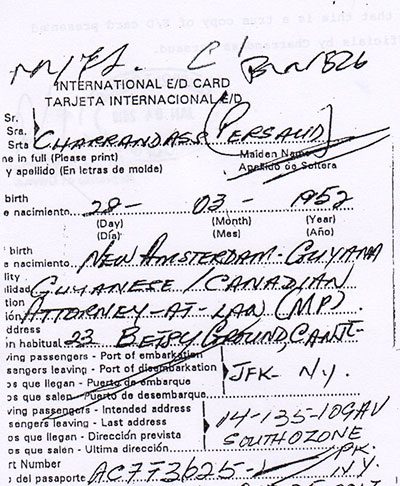 that this is a true copy of E/D card presented
officials by Charrandass Persaud.
INTERNATIONAL E/D CARD
TARJETA INTERNACIONAL E/D
Sr.
Sra.
Srta CHARRANDASS PERSAUD
ne in full (Please print) Maiden Name
y apellido (En letras de molde) Apellido de Soltera
birth
e nacimiento 28- 03- 1952
(Day) (Month) (Year)
(Día) (Mes) (Año)
birth
e nacimiento NEW AMSTERDAM-GUYANA
lity
ilidad GUYANESE / CANADIAN
tion
ión ATTORNEY-AT-LAW (MP)
ddress
n habitual 23 BETSY GROUND CANJE
ving passengers - Port of embarkation
sengers leaving - Port of disembarkation JFK- N.Y.
os que llegan - Puerto de embarque
os que salen - Puerto de desembarque
ving passengers - Intended address 114-135-109AV
sengers leaving - Last address SOUTH OZONE
os que llegan - Dirección prevista PK.
os que salen - Ultima dirección
rt Number N.Y.
o del pasaporte AC773625-